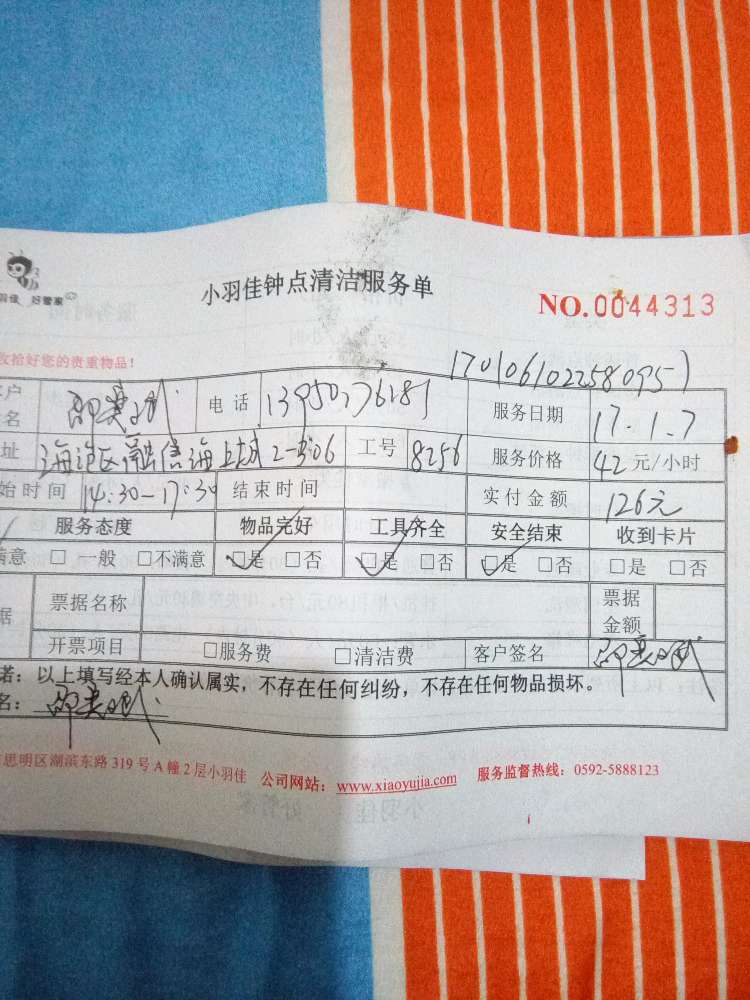 好管家
小羽佳钟点清洁服务单
NO.0044313
收拾好您的贵重物品!
1701061022580951
电话 服务日期 17.1.7
海沧区融信海上城2-3506 工号 8256 服务价格 42元/小时
始时间 14:30-17:30 结束时间 实付金额 126元
服务态度 物品完好 工具齐全 安全结束 收到卡片
满意 □一般 □不满意 □是 □否 □是 □否 □是 □否 □是 □否
票据名称 票据金额
开票项目 □服务费 □清洁费 客户签名
诺:以上填写经本人确认属实,不存在任何纠纷,不存在任何物品损坏。
名:
思明区湖滨东路319号A幢2层小羽佳 公司网站:www.xiaoyujia.com 服务监督热线:0592-5888123